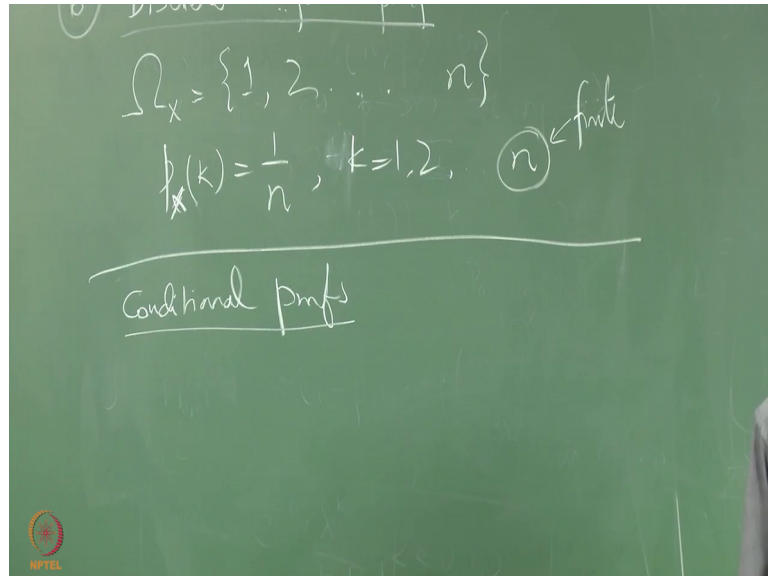 Ωₓ = {1, 2. . . . n}
pₓ(k) = 1/n, k=1,2, n ← finite
Conditional pmfs
NPTEL